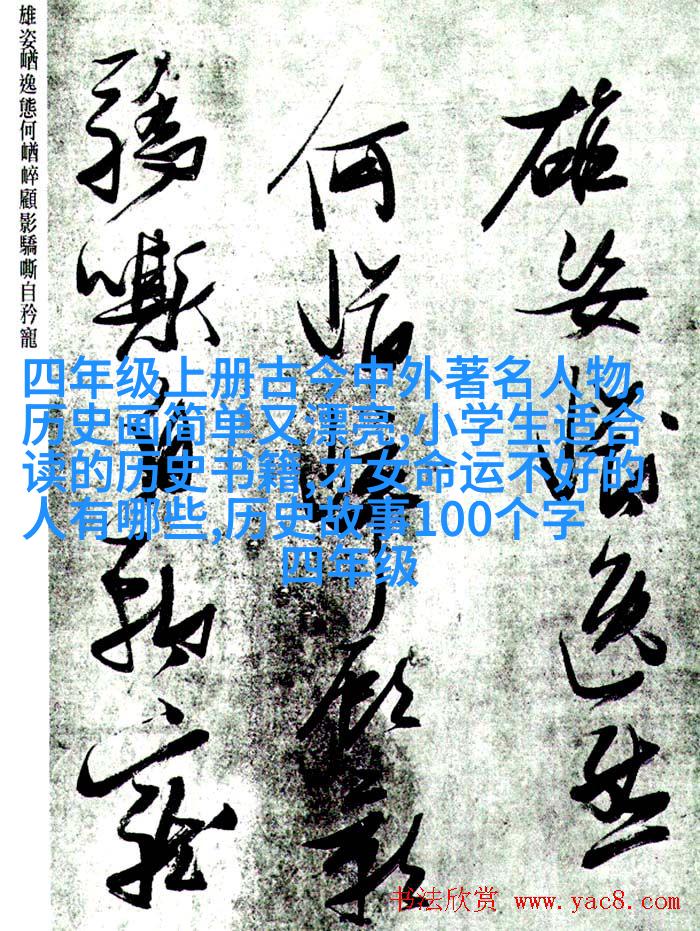 雄姿崷逸態何崷崪顧影驕嘶自矜寵
雄姿崷逸態
何崷崪顧影
驕嘶自矜寵
四年级上册古今中外著名人物,
历史画简单又漂亮,小学生适合
读的历史书籍,才女命运不好的
人有哪些,历史故事100个字
四年级
书法欣赏 www.yac8.com